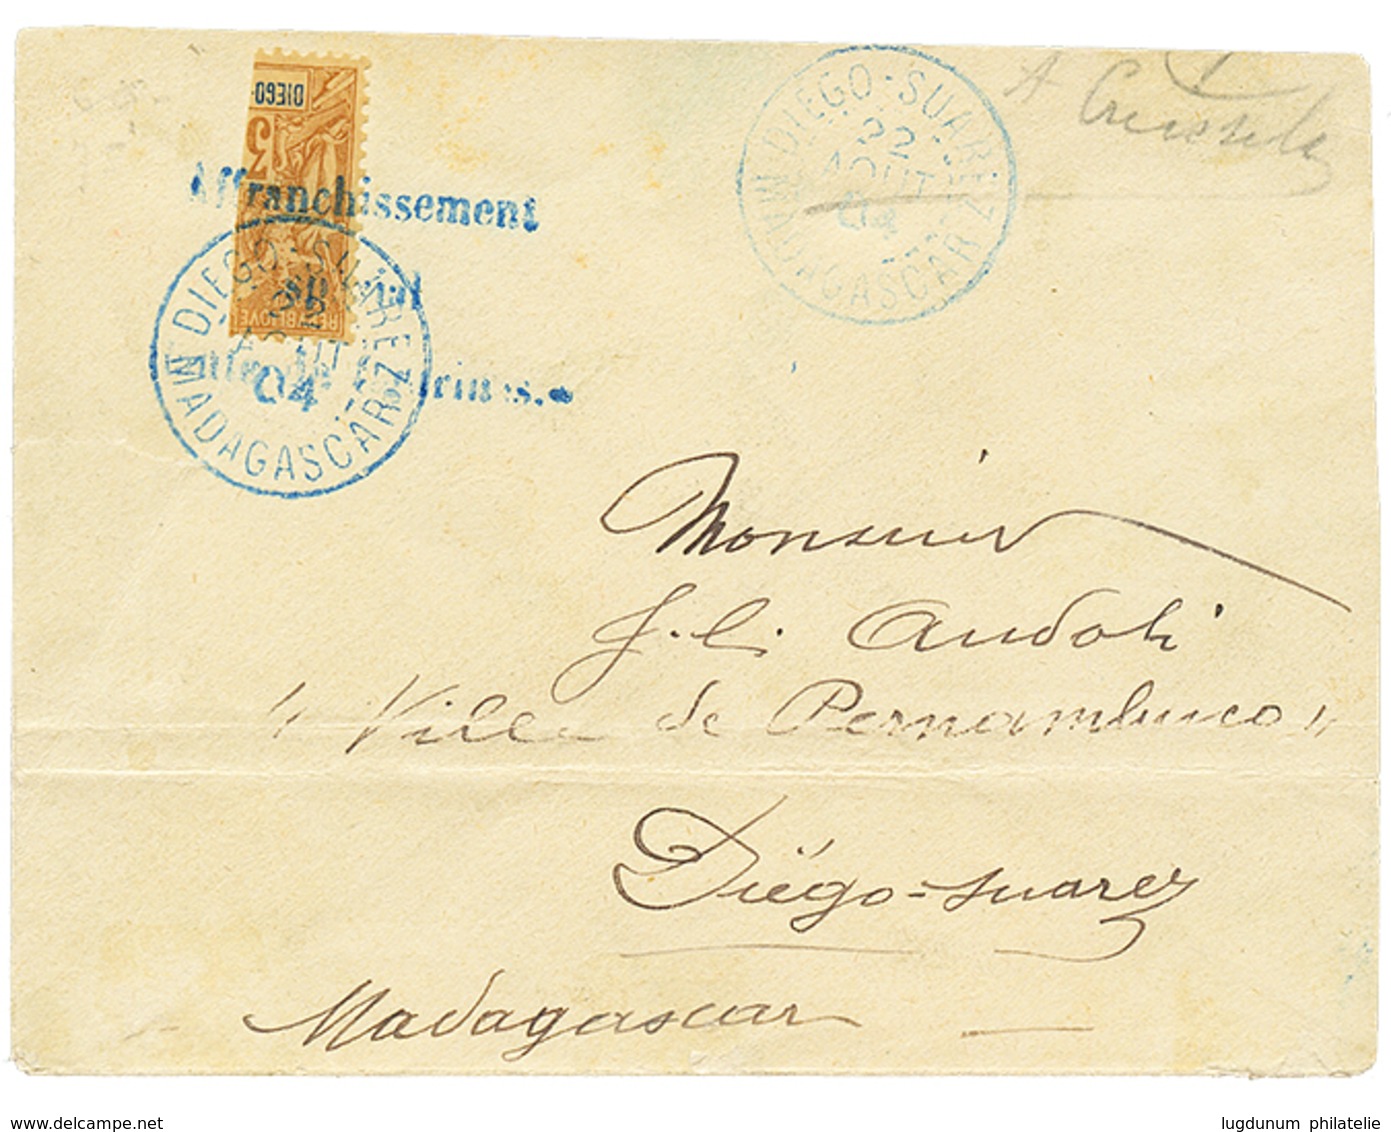 DIEGO
3
REPVBLIQVE
Affranchissement
spécial
DIEGO-SUAREZ
22
AOUT
04
MADAGASCAR
DIEGO-SUAREZ
22
AOUT
04
MADAGASCAR
A
Monsieur
J. C. Audoli
"Ville de Pernambuco"
Diégo-Suarez
Madagascar
www.delcampe.net
lugdunum philatelie